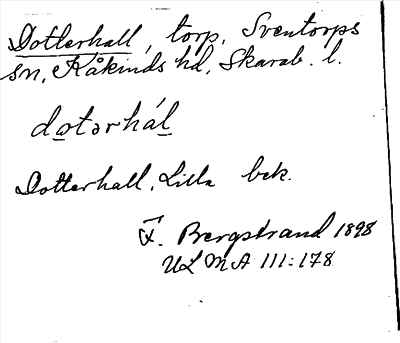 Dotterhall, torp, Sventorps
sn, Kåkinds hd, Skarab. l.
dotərhál
Dotterhall, Lilla bek.
F. Bergstrand 1898
ULMA 111:178